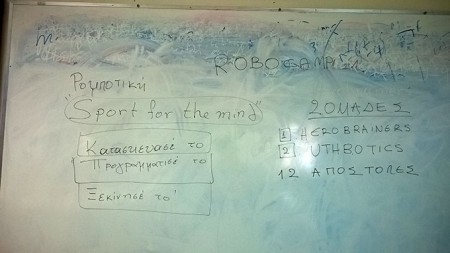 Ρομποτική
"Sport for the mind"
Κατασκεύασέ το
Προγραμμάτισέ το
Ξεκίνησέ το
2 ΟΜΑΔΕΣ
1 AEROBRAINERS
2 UTHBOTICS
12 ΑΠΟΣΤΟΛΕΣ